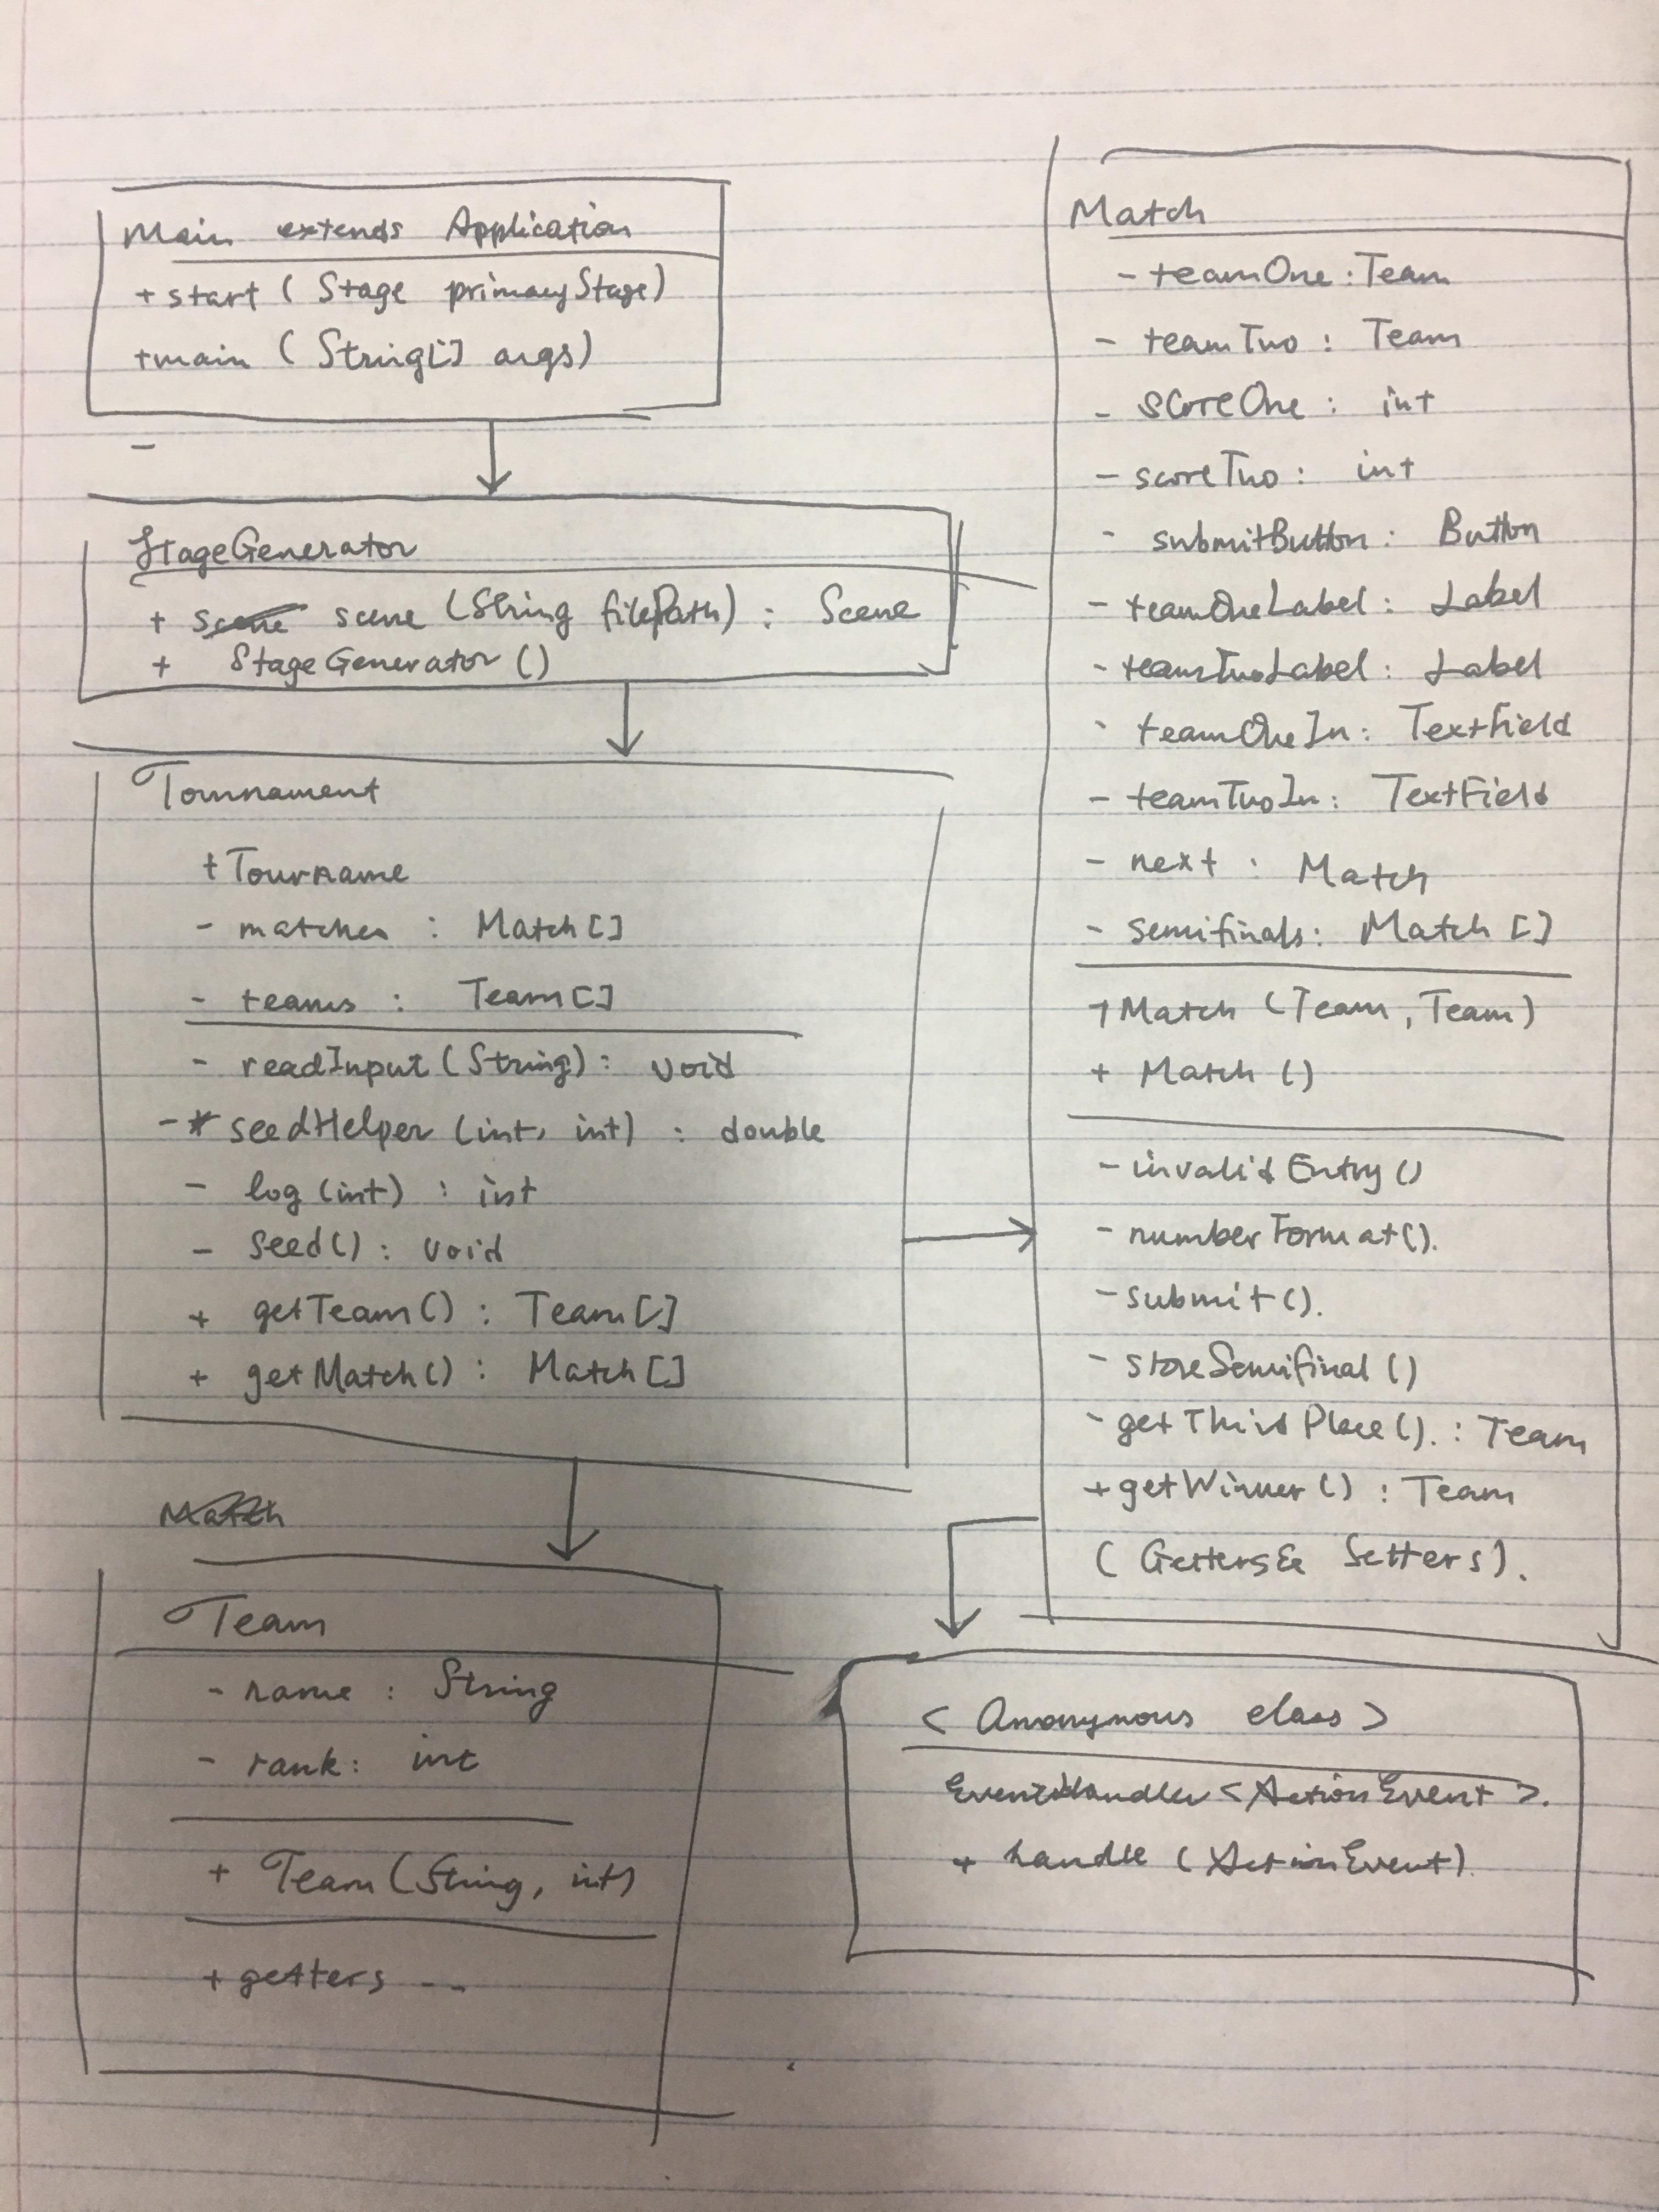 Main extends Application
+ start (Stage primaryStage)
+main (String[] args)
-
StageGenerator
+ scene (String filePath) : Scene
+ StageGenerator()
Tournament
+Tourname
- matches : Match[]
- teams : Team[]
- readInput(String) : void
- # seedHelper (int, int) : double
- log(int) : int
- seed() : void
+ getTeam() : Team[]
+ getMatch() : Match[]
Match
Team
- name : String
- rank : int
+ Team (String, int)
+ getters ----
Match
- teamOne : Team
- teamTwo : Team
- scoreOne : int
- scoreTwo : int
- submitButton : Button
- teamOneLabel : Label
- teamTwoLabel : Label
- teamOneIn : TextField
- teamTwoIn : TextField
- next : Match
- semifinals : Match[]
+Match (Team, Team)
+ Match ()
- invalidEntry()
- numberFormat().
- submit().
- storeSemifinal()
- getThirdPlace(). : Team
+ getWinner() : Team
(Getters & Setters).
< Anonymous class >
EventHandler<ActionEvent>.
+ handle (ActionEvent).